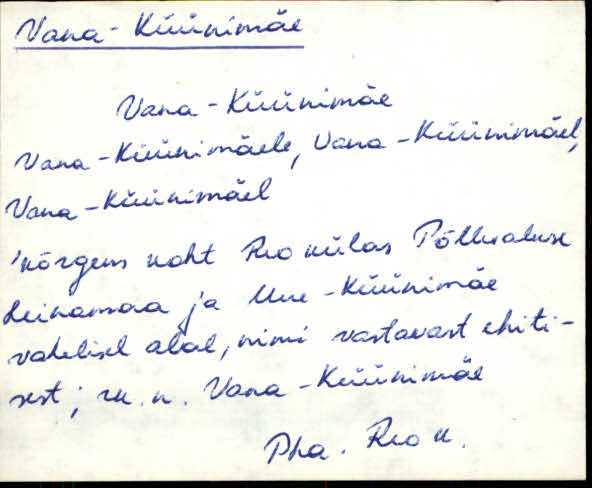 Vana-Küünimäe
Vana-Küünimäe
Vana-Küünimäele, Vana-Küünimäel,
Vana-Küünimäel
'kõrgem koht Reo külas Põllualuse
heinamaa ja Uue-Küünimäe
vahelisel alal, nimi vastavast ehiti-
sest; rk. n. Vana-Küünimäe
Pha. Reo k.